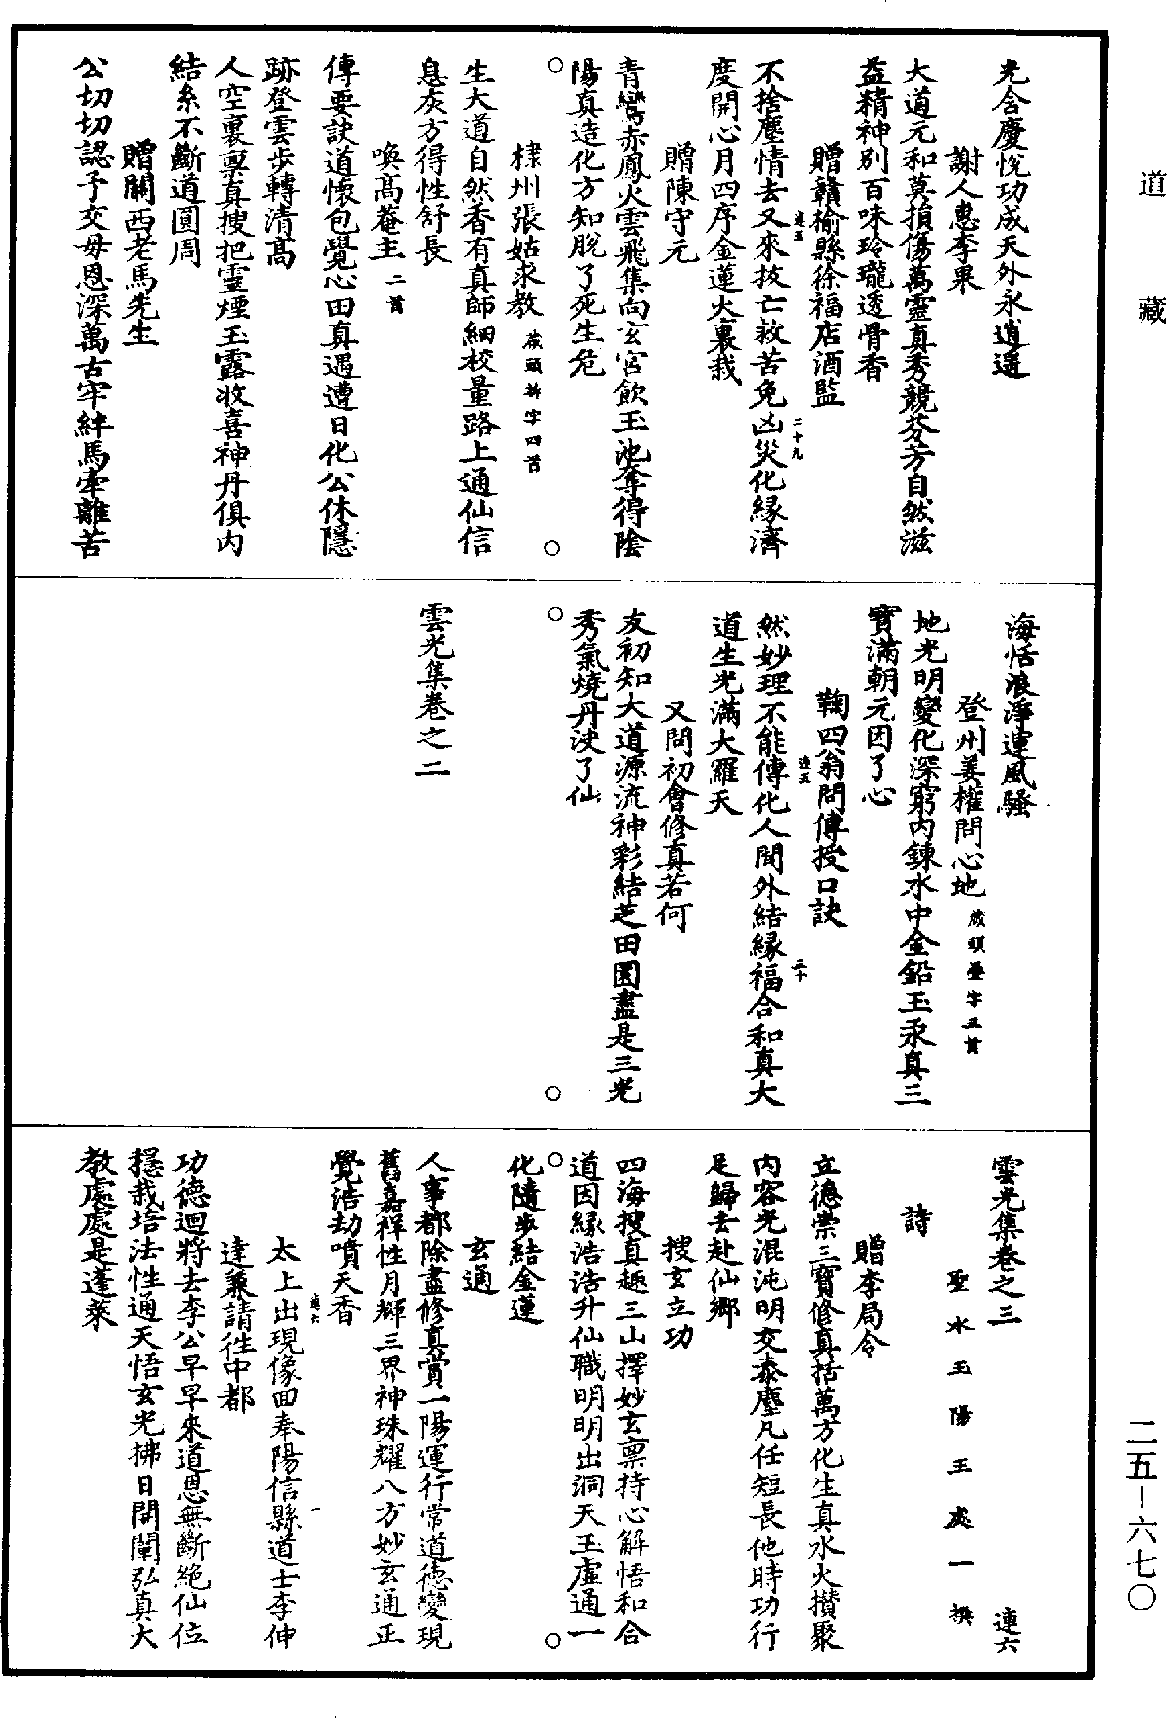 道藏
光含慶悅功成天外永逍遥
謝人惠李果
大道元和莫損傷萬靈真秀競芬芳自然滋
益精神別百味玲瓏透骨香
贈贛榆縣徐福店酒監
不捨塵情去又來拔亡救苦免凶災化緣濟
度開心月四序金蓮火裏栽
連五
二十九
贈陳守元
青鸞赤鳳火雲飛集向玄宮飲玉池奪得陰
陽真造化方知脫了死生危
棣州張姑求教 藏頭拆字四首
生大道自然香有真師細校量路上通仙信
息灰方得性舒長
喚高菴主 二首
傳要訣道懷包覺心田真遇遭日化公休隱
跡登雲步轉清高
人空裏稟真搜把靈煙玉露收喜神丹俱內
結糸不斷道圓周
贈關西老馬先生
公切切認予交毋恩深萬古牢絆馬牽離苦
海恬浪淨運風騷
登州姜權問心地 藏頭疊字五首
地光明變化深窮內鍊水中金鉛玉汞真三
寶滿朝元因了心
鞠四翁問傳授口訣
然妙理不能傳化人間外結緣福合和真大
道生光滿大羅天
連五
三十
又問初會修真若何
友初知大道源流神彩結芝田園盡是三光
秀氣燒丹決了仙
雲光集卷之二
雲光集卷之三 連六
聖水玉陽王處一撰
詩
贈李局令
立德崇三寶修真括萬方化生真水火攢聚
內容光混沌明交泰塵凡任短長他時功行
足歸去赴仙鄉
搜玄立功
四海搜真趣三山擇妙玄稟持心解悟和合
道因緣浩浩升仙職明明出洞天玉虛通一
化隨步結金蓮
玄通
人事都除盡修真賞一陽運行常道德變現
舊嘉祥性月輝三界神珠耀八方妙玄通正
覺浩劫噴天香
連六
一
太上出現像回奉陽信縣道士李伸
達兼請往中都
功德迴將去李公早早來道恩無斷絕仙位
穩栽培法性通天悟玄光拂日開闡弘真大
教處處是蓬萊
二五－六七〇